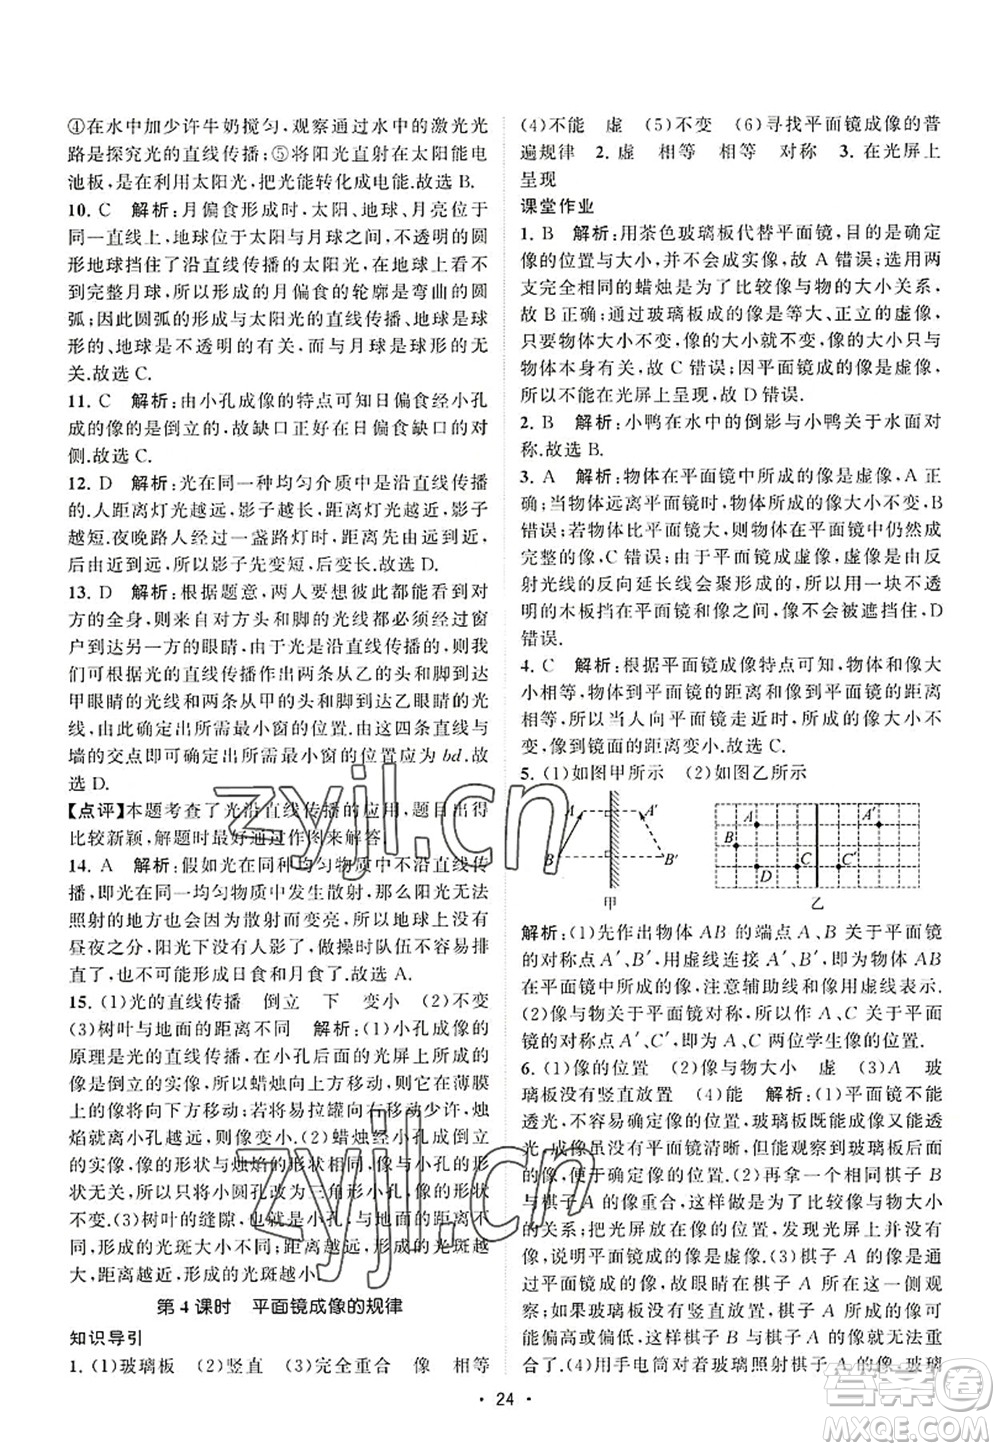 ④在水中加少许牛奶搅匀,观察通过水中的激光光
路是探究光的直线传播;⑤将阳光直射在太阳能电
池板,是在利用太阳光,把光能转化成电能.故选 B.
10. C 解析:月偏食形成时,太阳、地球、月亮位于
同一直线上,地球位于太阳与月球之间,不透明的圆
形地球挡住了沿直线传播的太阳光,太阳光不能到
达整个月球,所以形成的月偏食的轮廓是弯曲的圆
弧;因此圆弧的形成与太阳光的直线传播有关,与
地球是不透明的有关,而与月球是球形的无
关.故选 C.
11. C 解析:由小孔成像的特点可知日偏食经小孔
成的像是倒立的,故缺口正好在日偏食缺口的对
侧.故选 C.
12. D 解析:光在同一种均匀介质中是沿直线传播
的,人距离灯光越远,影子越长,距离灯光越近,影子
越短.夜晚路人经过一盏路灯时,先离路灯越来越
近,再逐渐远离路灯,所以影子先变短,后变长.故选 D.
13. D 解析:根据题意,两人彼此都能看到对方的
头部,则来自对方头和脚的光线都必须经过窗
户到达另一方的眼睛,光是沿直线传播的,我们
根据光的直线传播作出两条从乙的头和脚到达
甲眼睛的光线和两条从甲的头和脚到达乙眼睛的光
线,如图,即可确定出所需最小窗的位置.由这四条直线与
墙的交点即可确定出所需最小窗的位置应为 bd.故
选 D.
【点评】本题考查了光沿直线传播的应用,题目出得
比较新颖,解题时最好通过作图来解答.
14. A 解析:假如光在同种均匀物质中不沿直线传
播,光在同一均匀物质中发生散射,那么阳光无法
照射的地方也会因为散射而变亮,所以地球上没有
昼夜之分,阳光下没有人影了,做操时队伍不容易排
直了,也不可能形成日食和月食了.故选 A.
15. (1)光的直线传播 倒立 下 变小 (2)不变
(3)树叶与地面的距离不同 解析:(1)小孔成像的
原理是光的直线传播,在小孔后的光屏上形成的是
倒立的实像,所以蜡烛向上移动,会看到在薄膜
上的烛焰的像向下方移动;若将易拉罐向右移动少许,烛
焰离小孔越远,则像变小.(2)蜡烛经小孔成倒立的
实像,像的形状与烛焰的形状相同,与小孔的形状
无关,所以将小圆孔改为三角形小孔,像的形状
不变.(3)树叶的缝隙,也就是小孔离地面越近,
所形成的光斑越大;距离地面越远,形成的光斑越
模糊,所成的光斑越小.
第 4 课时 平面镜成像的规律
知识导引
1. (1)玻璃板 (2)竖直 (3)完全重合 像 相等
(4)不能 虚 (5)不变 (6)寻找平面镜成像的普
遍规律 2. 虚 相等 相等 对称 3. 在光屏上
呈现
课堂作业
1. B 解析:用茶色玻璃板代替平面镜,目的是确定
像的位置与大小,不会成实像,故 A 错误;选取两
支完全相同的蜡烛是为了比较像与物的大小关系,
故 B 正确;通过玻璃板成的像是等大、正立的虚像,
像的大小与玻璃板的大小、与物体的距离无关,只与
物体本身有关,故 C 错误;因平面镜成的是虚像,
所以不能在光屏上呈现,故 D 错误.
2. B 解析:小鸭在水中的倒影与小鸭关于水面对
称.故选 B.
3. A 解析:物体在平面镜中所成的像是虚像,A 正
确;当物体远离平面镜时,物体所成的像大小不变,B
错误;若物体比平面镜大,则物体在平面镜中所成
完整的像,C 错误;由于平面镜成虚像,虚像是由反
射光线的反向延长线会聚形成的,所以用一块不透明
的木板挡在平面镜和像之间,不会将像遮挡住,D
错误.
4. C 解析:根据平面镜成像特点可知,物体和像大
小相等,物体到平面镜的距离和像到平面镜的距离
相等,所以当人向平面镜走近时,所成的像大小不
变,像到镜面的距离变小.故选 C.
5. (1)如图甲所示 (2)如图乙所示
A A′ B B′ 甲
A A′ B C C′ 乙
解析:(1)先作出物体 AB 的端点 A、B 关于平面镜
的对称点 A′、B′,用虚线连接 A′、B′,即为物体 AB
在平面镜中所成的像,注意辅助线和虚像用虚线表示.
(2)物体和像关于平面镜对称,所以作出 A、C 关于
平面镜的对称点 A′、C′即为 A、C 两位学生像的位置.
6. (1)像的位置 (2)像与物大小 虚 (3)A 玻
璃板没有竖直放置 (4)能 解析:(1)平面镜不能
透光,不容易确定像的位置,玻璃板既能成像又能透
光,所成的像虽没有平面镜清晰,但能观察到玻璃板后面
的情况,便于确定像的位置;(2)再拿一个相同棋子 B
与棋子 A 的像重合,这样做是为了比较像与物大小
的关系;把光屏放在像的位置,发现光屏上没有
像,说明平面镜成的是虚像;(3)把棋子 A 放在玻璃
板前,看到棋子 A 的像,眼睛应在棋子 A 这一侧观
察;如果玻璃板没有竖直放置,棋子 A 的像可能
偏高或偏低,这样棋子 B 与棋子 A 的像就无法重
合了.(4)用手电筒对着玻璃照射棋子 A,可增加玻璃
· 24 ·
zyjl.cn
zyjl.cn
答案圈
MXQE.COM